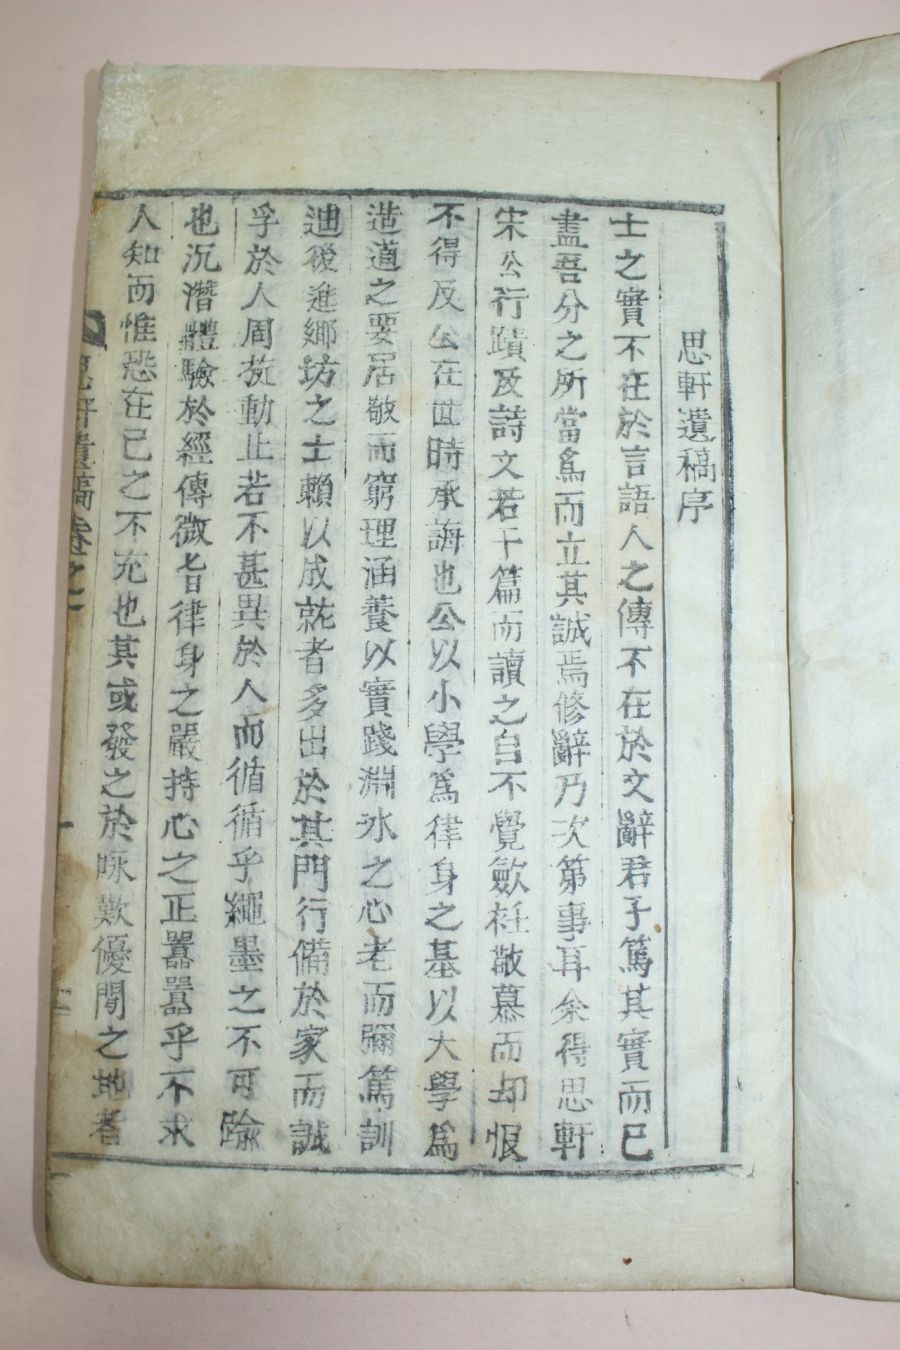 思軒遺稿序
士之實不在於言語人之傳不在於文辭君子篤其實而已
盡吾分之所當爲而立其誠焉修辭乃次第事耳余得思軒
宋公行蹟及詩文若干篇而讀之自不覺斂衽敬慕而却恨
不得及公在世時承誨也公以小學爲律身之基以大學爲
造道之要居敬而窮理涵養以實踐淵氷之心老而彌篤訓
迪後進鄉坊之士賴以成就者多出於其門行備於家而誠
孚於人周旋動止若不甚異於人而循循乎繩墨之不可踰
也沉潛體驗於經傳微旨律身之嚴持心之正囂囂乎不求
人知而惟恐在己之不充也其或發之於咏歎優閒之地者
思軒遺稿卷之一